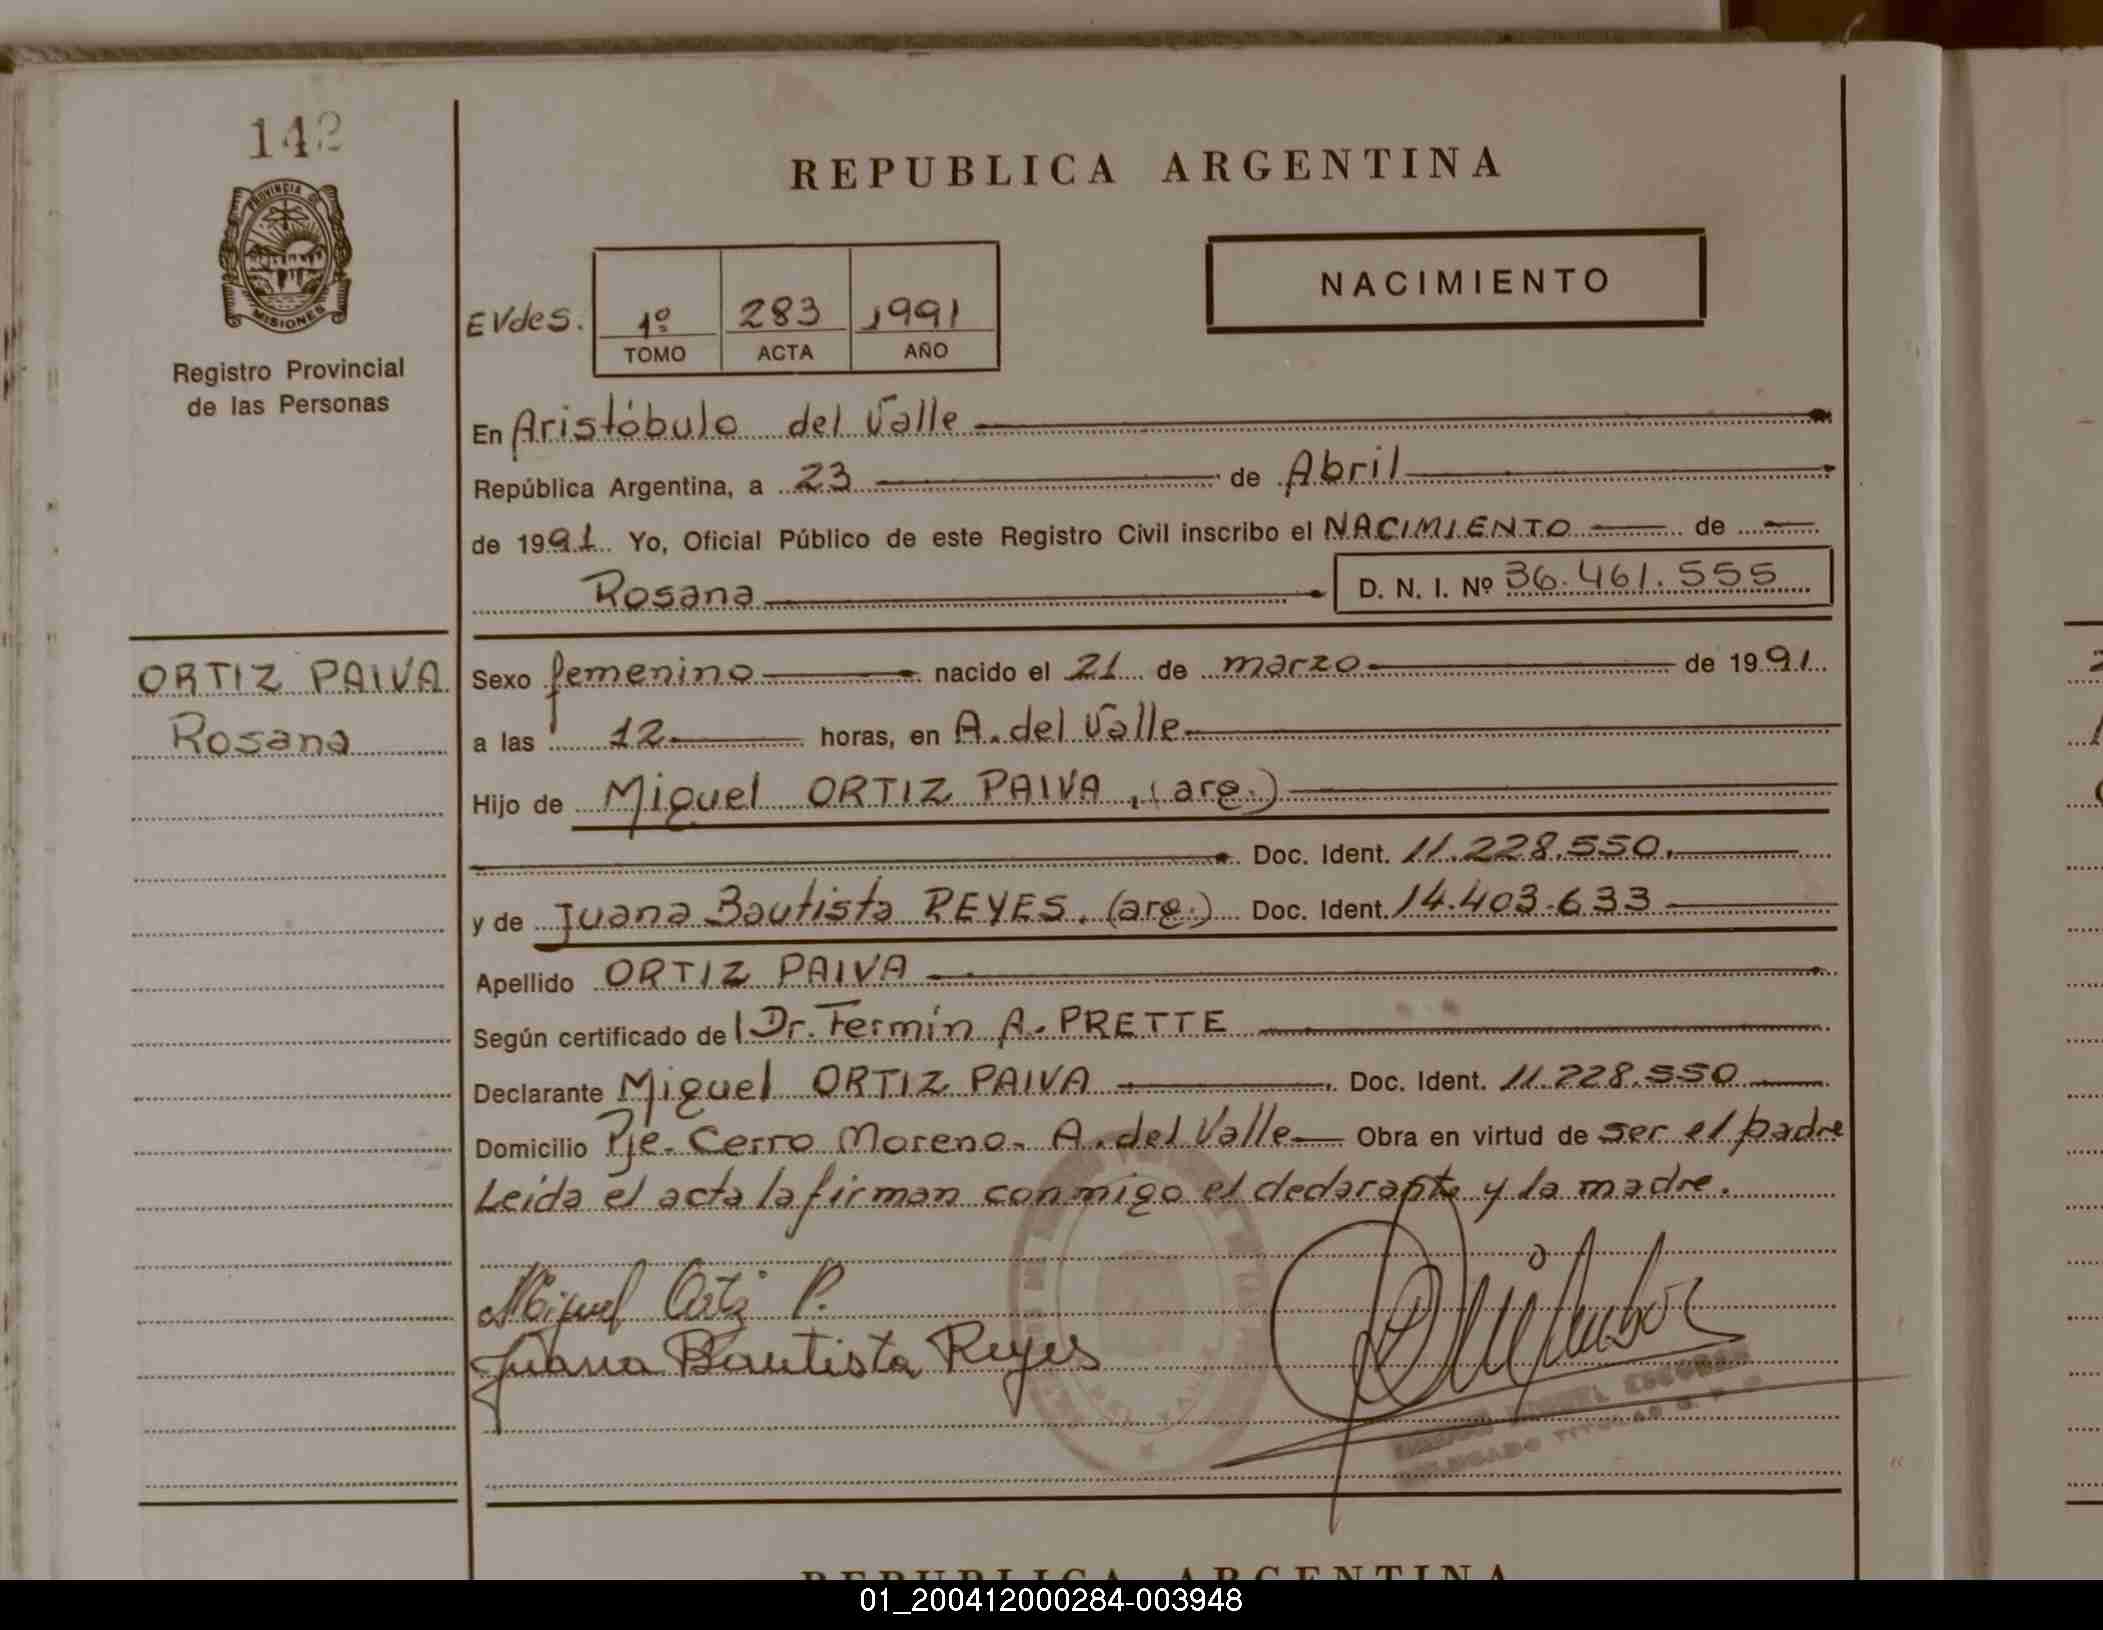 142
PROVINCIA DE
MISIONES
Registro Provincial
de las Personas
REPUBLICA ARGENTINA
NACIMIENTO
EVdes. 1º 283 1991
TOMO ACTA AÑO
En Aristóbulo del Valle
República Argentina, a 23 de Abril
de 1991 Yo, Oficial Público de este Registro Civil inscribo el NACIMIENTO de
Rosana D. N. I. Nº 36.461.555
ORTIZ PAIVA
Rosana
Sexo femenino nacido el 21 de marzo de 1991
a las 12 horas, en A. del Valle
Hijo de Miguel ORTIZ PAIVA, (arg.)
Doc. Ident. 11.228.550.
y de Juana Bautista REYES. (arg.) Doc. Ident. 14.403.633
Apellido ORTIZ PAIVA
Según certificado de Dr. Fermín A. PRETTE
Declarante Miguel ORTIZ PAIVA Doc. Ident. 11.228.550
Domicilio Pje. Cerro Moreno. A. del Valle Obra en virtud de ser el padre
Leida el acta la firman conmigo el declarante y la madre.
Miguel Ortiz P.
Juana Bautista Reyes
REPUBLICA ARGENTINA
01_200412000284-003948